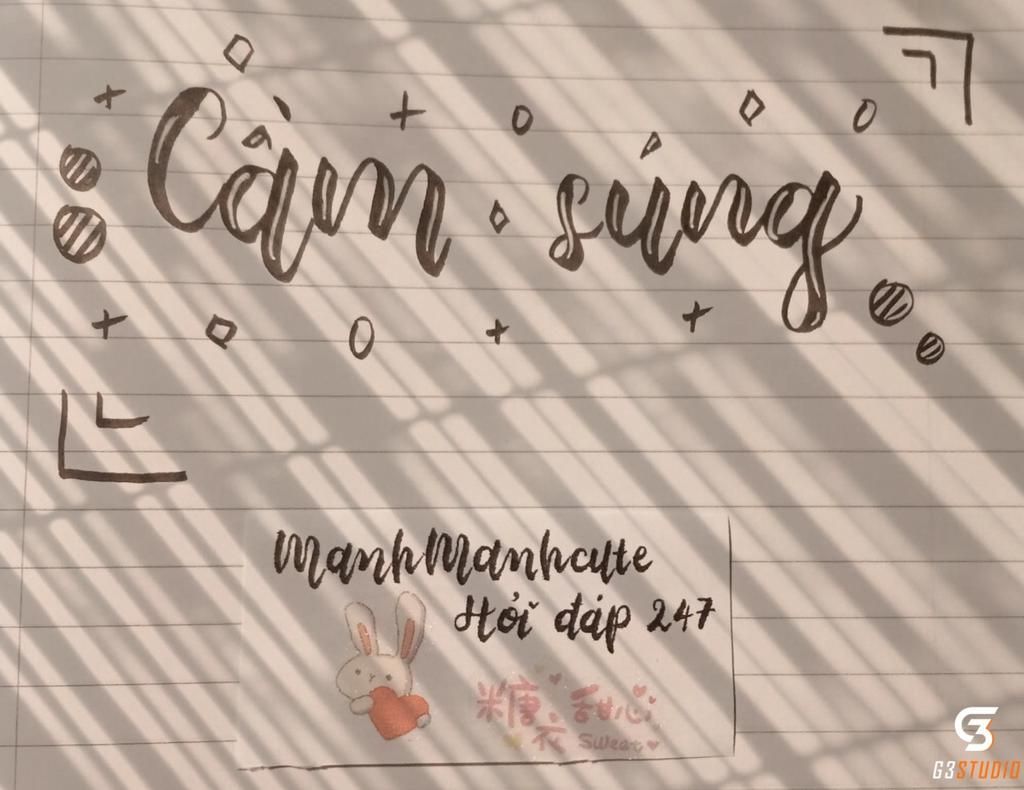 Cầm súng
ManhManhcute
Hỏi đáp 247
糖衣 甜心
Sweet
G3STUDIO